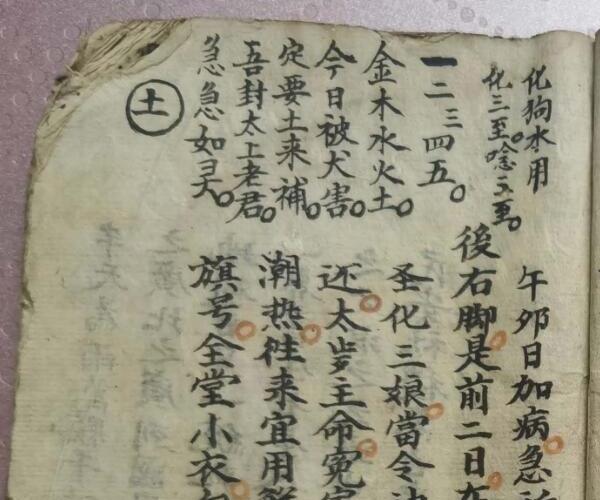 化狗水用
化三至。唸五至。
一二三四五。
金木水火土。
今日被犬害。
定要土来補。
吾封太上老君。
急急如灵。
土
午卯日加病。急
後右脚是前二日在
圣化三娘當令
还太岁主命冤
潮热往来宜用
旗号全堂小衣